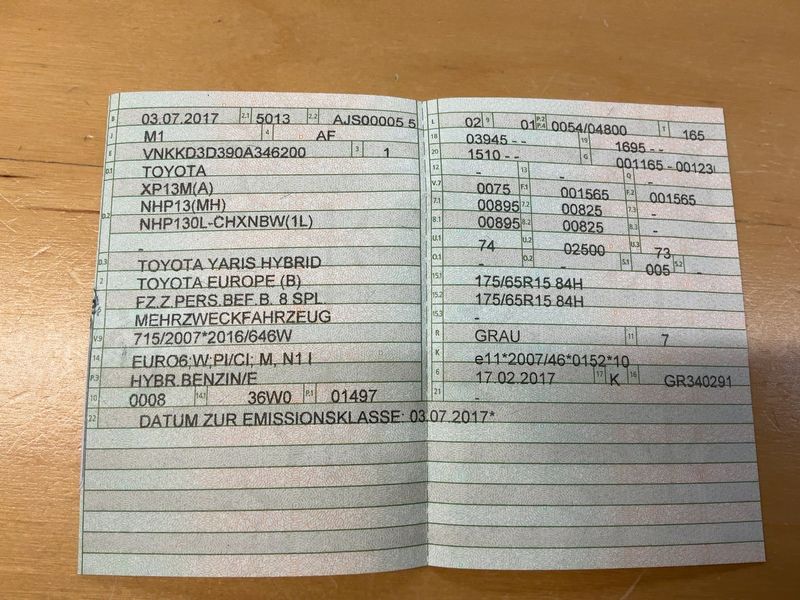 B 03.07.2017 2.1 5013 2.2 AJS00005 5
J M1 4 AF
E VNKKD3D390A346200 3 1
D.1 TOYOTA
XP13M(A)
NHP13(MH)
D.2 NHP130L-CHXNBW(1L)
-
D.3 TOYOTA YARIS HYBRID
2 TOYOTA EUROPE (B)
FZ.Z.PERS.BEF.B. 8 SPL.
MEHRZWECKFAHRZEUG
V.9 715/2007*2016/646W
14 EURO6;W;PI/CI; M, N1 I
P.3 HYBR.BENZIN/E
10 0008 14.1 36W0 P.1 01497
22 DATUM ZUR EMISSIONSKLASSE: 03.07.2017*
L 02 9 01 P.2 P.4 0054/04800 T 165
18 03945 - - 19 1695 - -
20 1510 - - G 001165 - 00123
12 - 13 - Q -
V.7 0075 F.1 001565 F.2 001565
7.1 00895 7.2 00825 7.3 -
8.1 00895 8.2 00825 8.3 -
U.1 74 U.2 02500 U.3 73
O.1 - O.2 - S.1 005 S.2 -
15.1 175/65R15 84H
15.2 175/65R15 84H
15.3 -
R GRAU 11 7
K e11*2007/46*0152*10
6 17.02.2017 17 K 16 GR340291
21 -